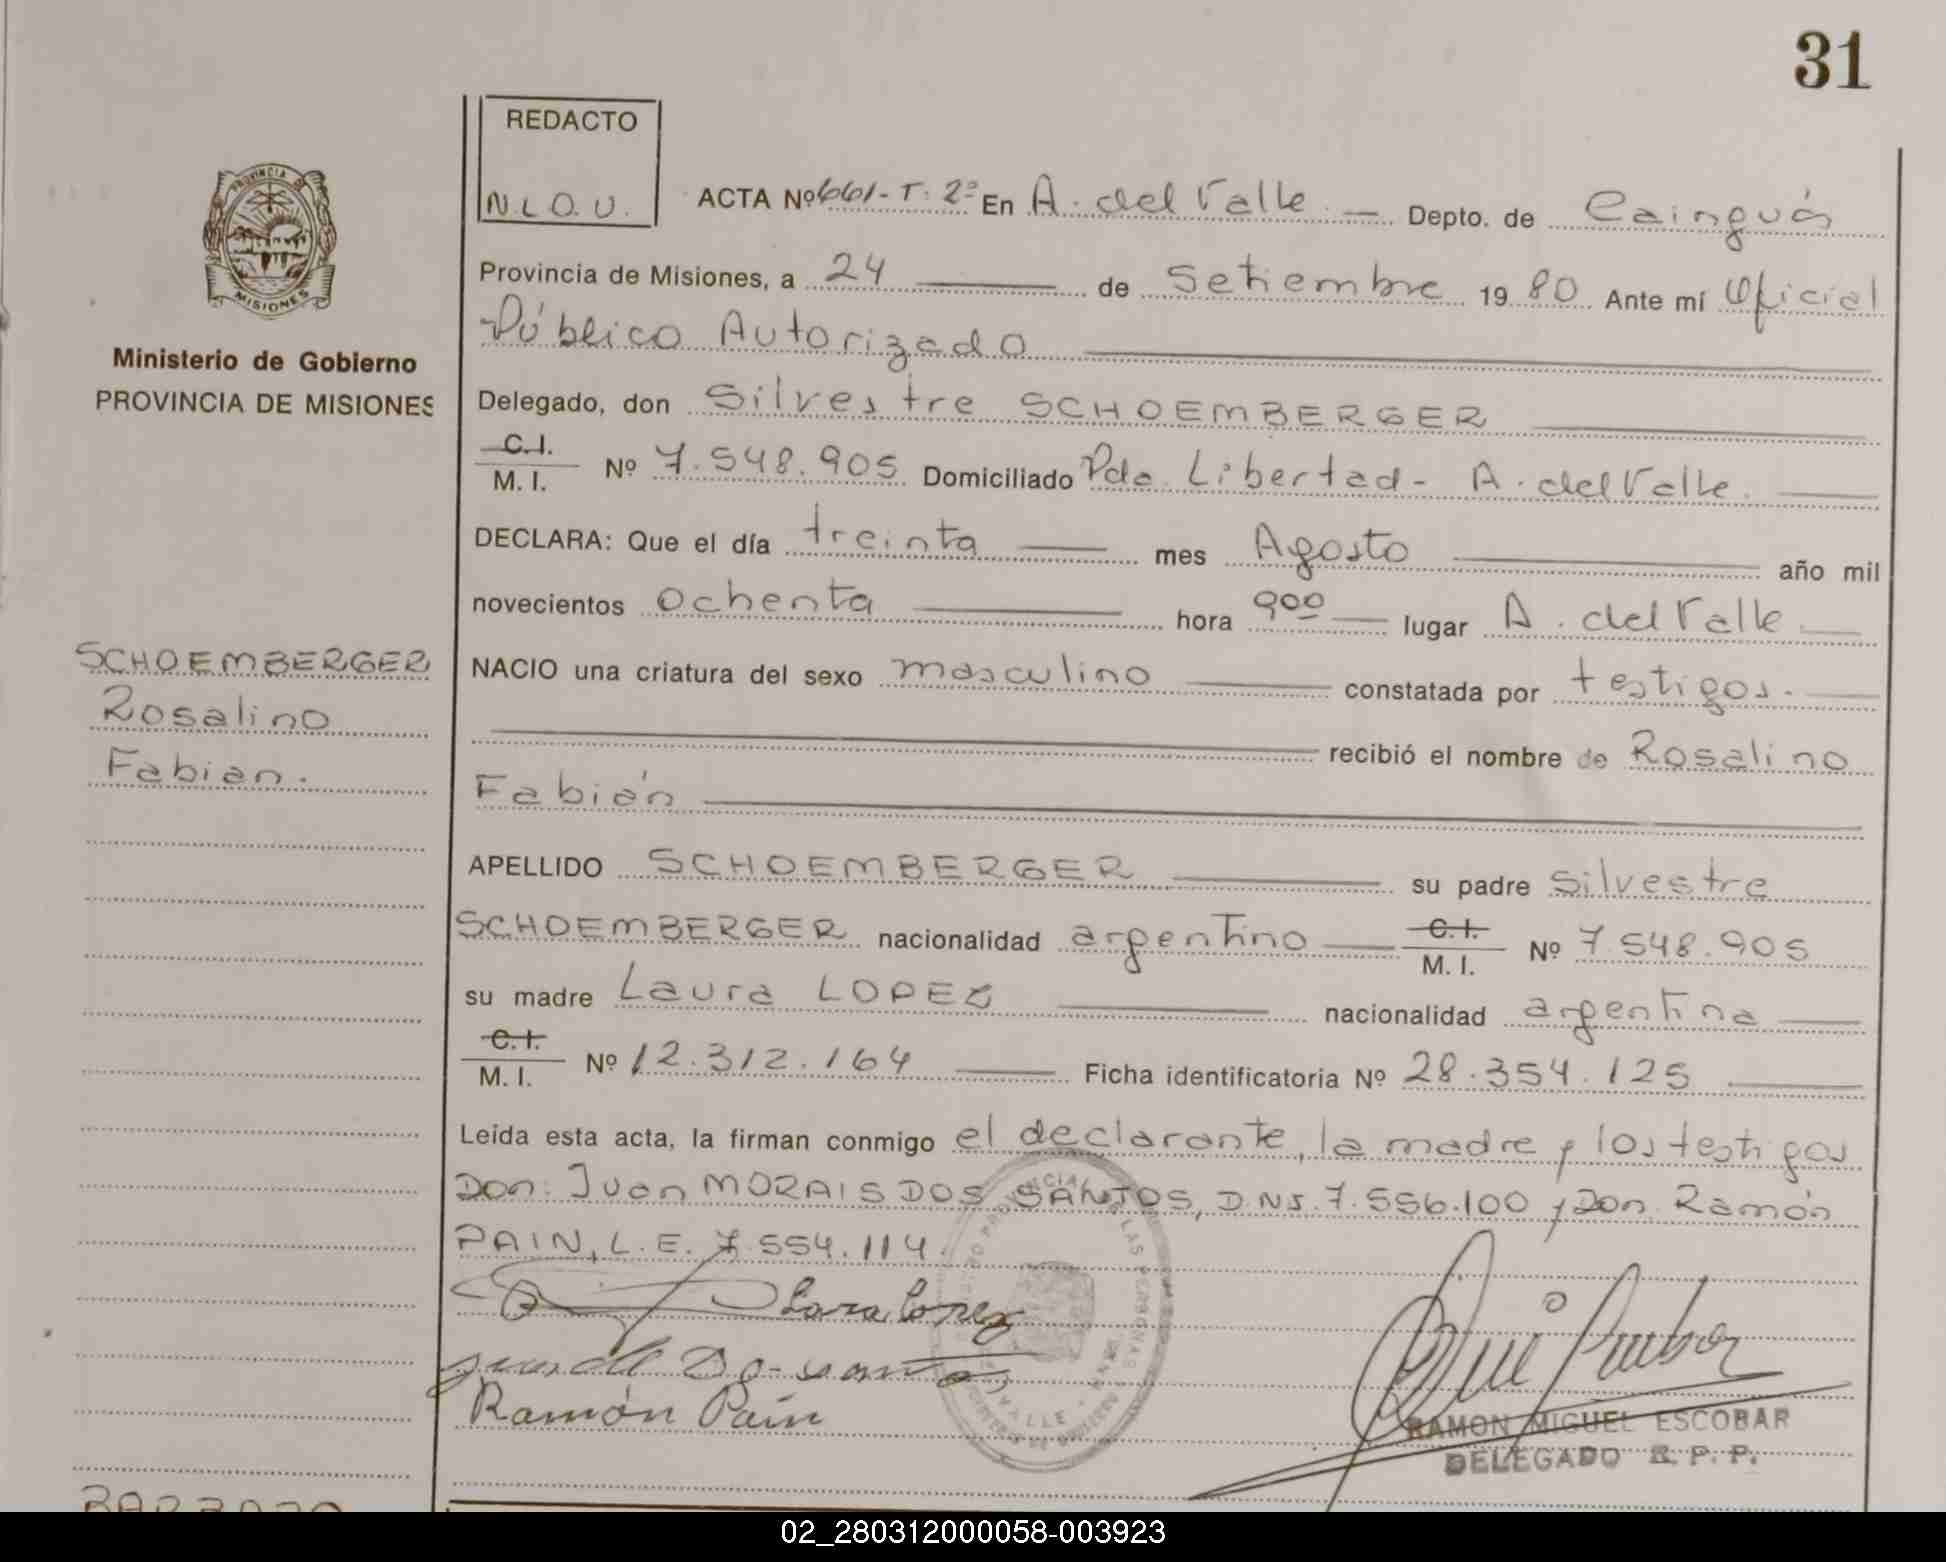 31
REDACTO
N.L.O.U.
PROVINCIA DE
MISIONES
Ministerio de Gobierno
PROVINCIA DE MISIONES
SCHOEMBERGER
Rosalino
Fabian.
ACTA Nº 661-T: 2º En A. del Valle — Depto. de Cainguás
Provincia de Misiones, a 24 de Setiembre 19 80 Ante mí Oficial
Público Autorizado
Delegado, don Silvestre SCHOEMBERGER
C.I.
M. I. Nº 7.548.905 Domiciliado Pdo. Libertad - A. del Valle.
DECLARA: Que el día treinta mes Agosto año mil
novecientos ochenta hora 900 lugar A. del Valle
NACIO una criatura del sexo masculino constatada por testigos.
recibió el nombre de Rosalino
Fabián
APELLIDO SCHOEMBERGER su padre Silvestre
SCHOEMBERGER nacionalidad argentino C.I. M. I. Nº 7.548.905
su madre Laura LOPEZ nacionalidad argentina
C.I.
M. I. Nº 12.312.164 Ficha identificatoria Nº 28.354.125
Leída esta acta, la firman conmigo el declarante, la madre y los testigos
Don: Juan MORAIS DOS SANTOS, D.N.I. 7.556.100 y Don Ramón
PAIN, L.E. 7.554.114.
Lara Lopez
Ramón Pain
RAMON MIGUEL ESCOBAR
DELEGADO R. P. P.
02_280312000058-003923